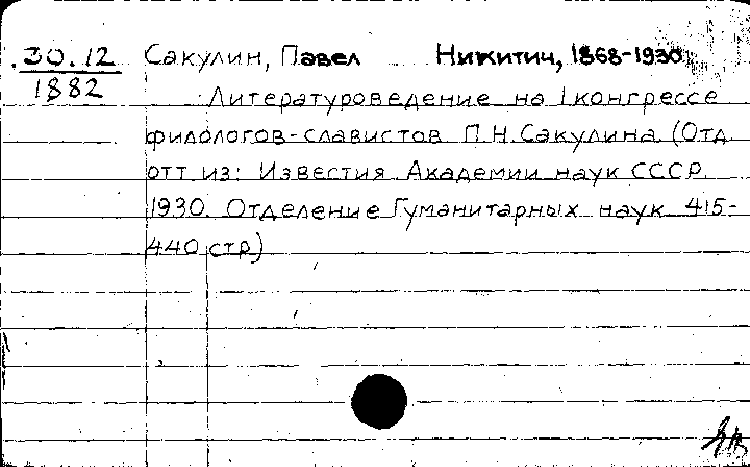 30.12 Сакулин, Павел Никитич, 1868-1930.
1882
Литературоведение на I конгрессе
филологов-славистов П.Н.Сакулина (Отд.
отт. из: Известия Академии наук СССР.
1930. Отделение Гуманитарных наук 415-
440 стр)